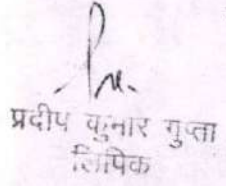 प्रदीप कुमार गुप्ता
लिपिक